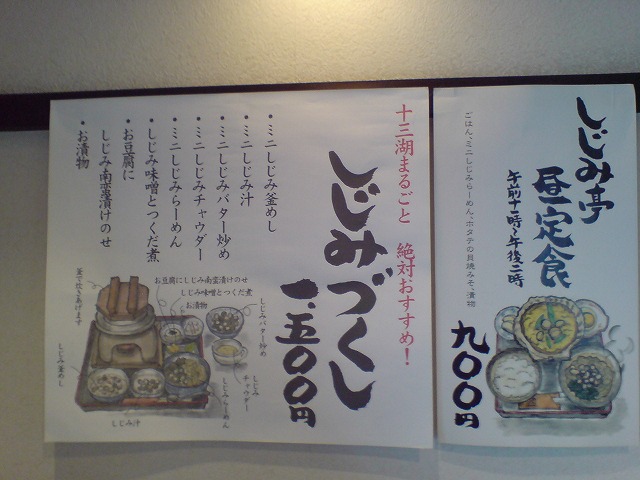 しじみ亭
昼定食
午前十一時~午後二時
ごはん、ミニしじみらーめん、ホタテの貝焼みそ、漬物
九〇〇円
十三湖まるごと 絶対おすすめ!
しじみづくし
一、五〇〇円
・ミニしじみ釜めし
・しじみ汁
・ミニしじみバター炒め
・ミニしじみチャウダー
・ミニしじみらーめん
・しじみ味噌とつくだ煮
・お豆腐に
しじみ南蛮漬けのせ
・お漬物
お豆腐にしじみ南蛮漬けのせ
しじみ味噌とつくだ煮
お漬物
しじみバター炒め
しじみチャウダー
しじみらーめん
しじみ汁
しじみ釜めし
釜で炊きあげます